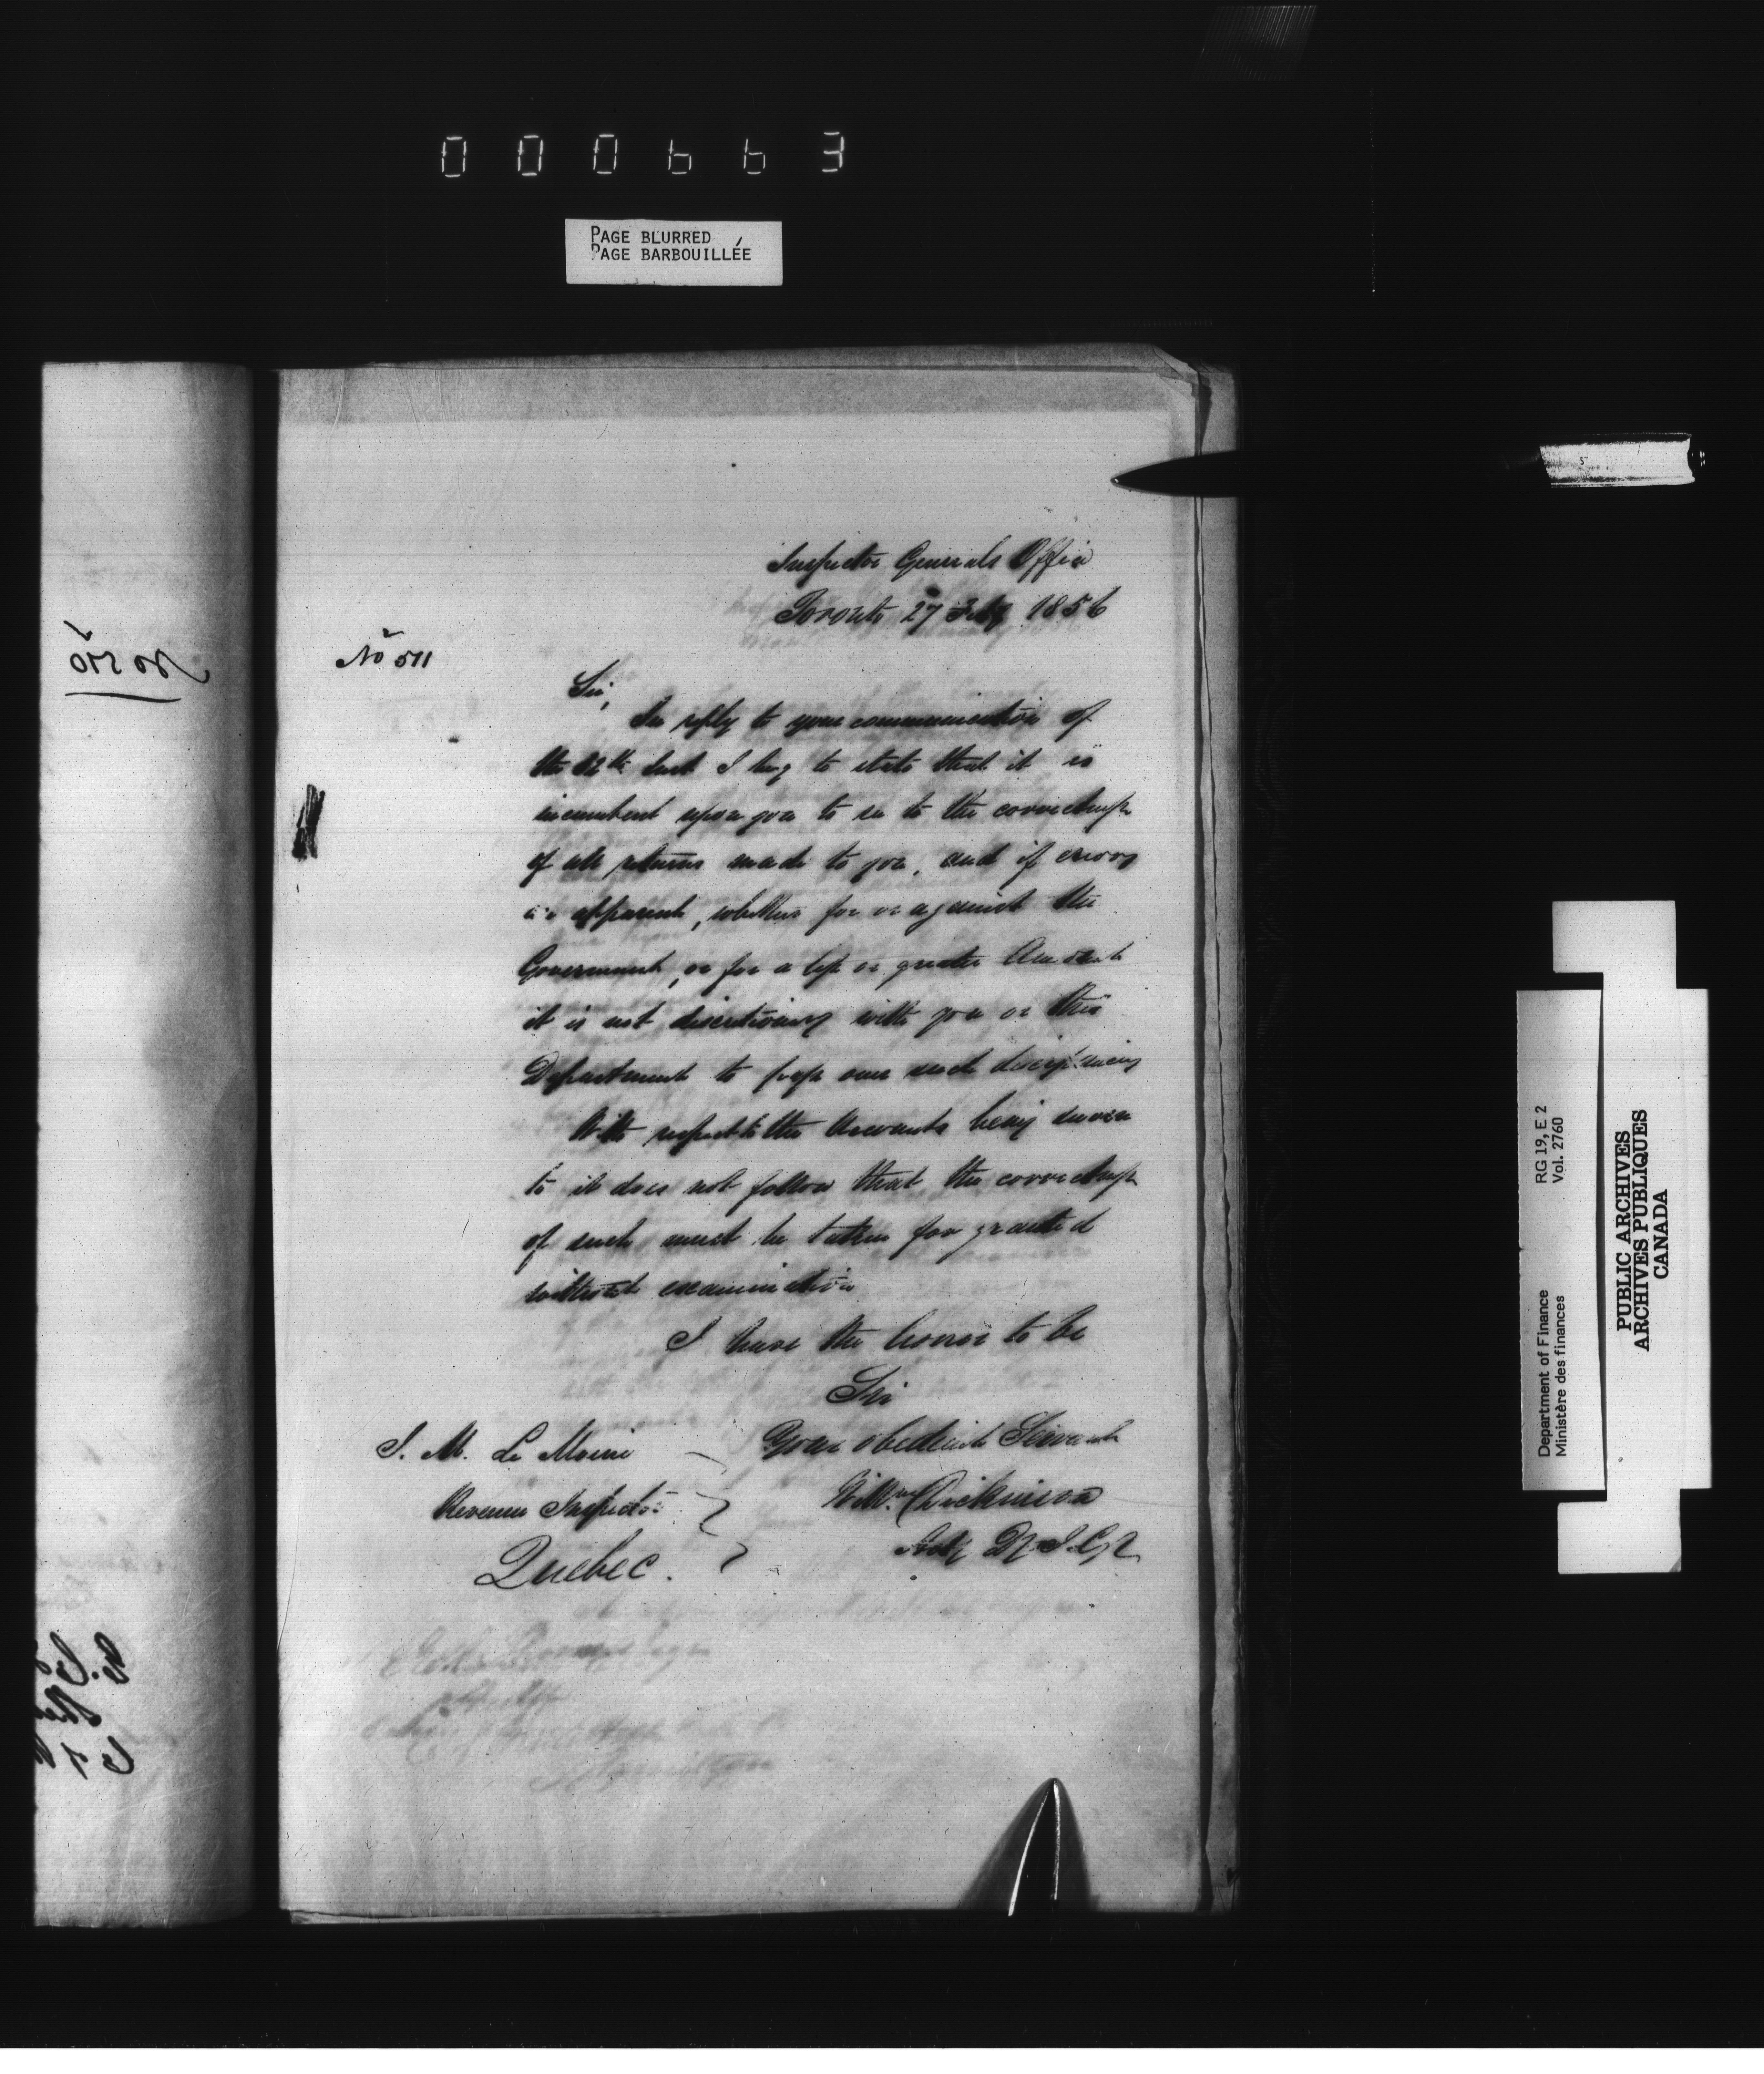 000663
PAGE BLURRED
PAGE BARBOUILLÉE
Inspector Generals Office
Toronto 27 Feby 1856
No 511
Sir,
In reply to your communication of
the 22th Inst I beg to state that it is
incumbent upon you to see to the correctness
of all returns made to you, and if errors
are apparent, whether for or against the
Government, or for a less or greater Amount
it is not discretionary with you or this
Department to pass over such discrepancies
With respect to the Accounts being sworn
to it does not follow that the correctness
of such must be taken for granted
without examination
I have the honor to be
Sir
Your obedient Servant
Willm Dickinson
Actg D. I. G.
J. M. Le Moine
Revenue Inspector
Quebec.
No 510
Department of Finance RG 19, E 2
Ministère des finances Vol. 2760
PUBLIC ARCHIVES
ARCHIVES PUBLIQUES
CANADA